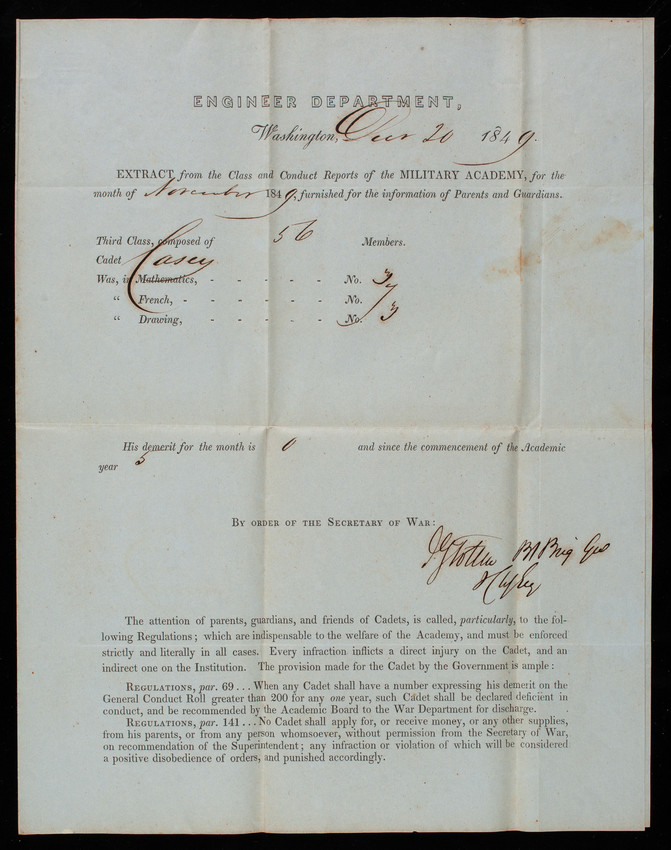 ENGINEER DEPARTMENT,
Washington, Decr 20 1849.
EXTRACT from the Class and Conduct Reports of the MILITARY ACADEMY, for the
month of November 1849, furnished for the information of Parents and Guardians.
Third Class, composed of 56 Members.
Cadet Casey
Was, in Mathematics, - - - - - - No. 3
“ French, - - - - - - No. 7
“ Drawing, - - - - - No. 3
His demerit for the month is 0 and since the commencement of the Academic
year 5
BY ORDER OF THE SECRETARY OF WAR:
J G Totten Bt Brig Gen
The attention of parents, guardians, and friends of Cadets, is called, particularly, to the fol-
lowing Regulations; which are indispensable to the welfare of the Academy, and must be enforced
strictly and literally in all cases. Every infraction inflicts a direct injury on the Cadet, and an
indirect one on the Institution. The provision made for the Cadet by the Government is ample:
REGULATIONS, par. 69 ... When any Cadet shall have a number expressing his demerit on the
General Conduct Roll greater than 200 for any one year, such Cadet shall be declared deficient in
conduct, and be recommended by the Academic Board to the War Department for discharge.
REGULATIONS, par. 141 ... No Cadet shall apply for, or receive money, or any other supplies,
from his parents, or from any person whomsoever, without permission from the Secretary of War,
on recommendation of the Superintendent; any infraction or violation of which will be considered
a positive disobedience of orders, and punished accordingly.